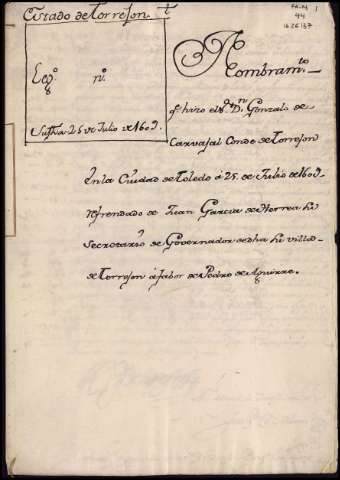 Estado de Torrejon. t
Leg.º n.º
Su fha 25 de Julio de 1609.
Nombram.to
q.e hizo el S.r D.n Gonzalo de
Carvajal Conde de Torrejon
en la Ciudad de Toledo á 25. de Julio de 1609
Refrendado de Juan Garcia de
Secretario de Governador de dha
de Torrejon á fabor de Pedro de Aguirre.
1
44